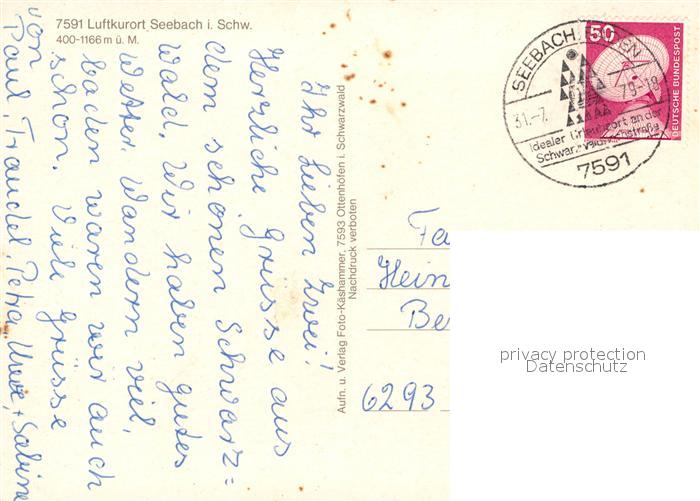 7591 Luftkurort Seebach i. Schw.
400-1166 m ü. M.
Ihr Lieben zwei!
Herrliche Grüsse aus
dem schönen Schwarz=
wald. Wir haben gutes
Wetter. Wandern viel,
baden waren wir auch
schon. Viele Grüsse
von
Paul, Traudel, Petra, Uwe + Sabine
Aufn. u. Verlag Foto-Käshammer, 7593 Ottenhöfen i. Schwarzwald
Nachdruck verboten
SEEBACH, BADEN
31.-7. 79-19
Idealer Urlaubsort an der
Schwarzwaldhochstraße
7591
50
DEUTSCHE BUNDESPOST
Fa
Hein
Be
6293
privacy protection
Datenschutz